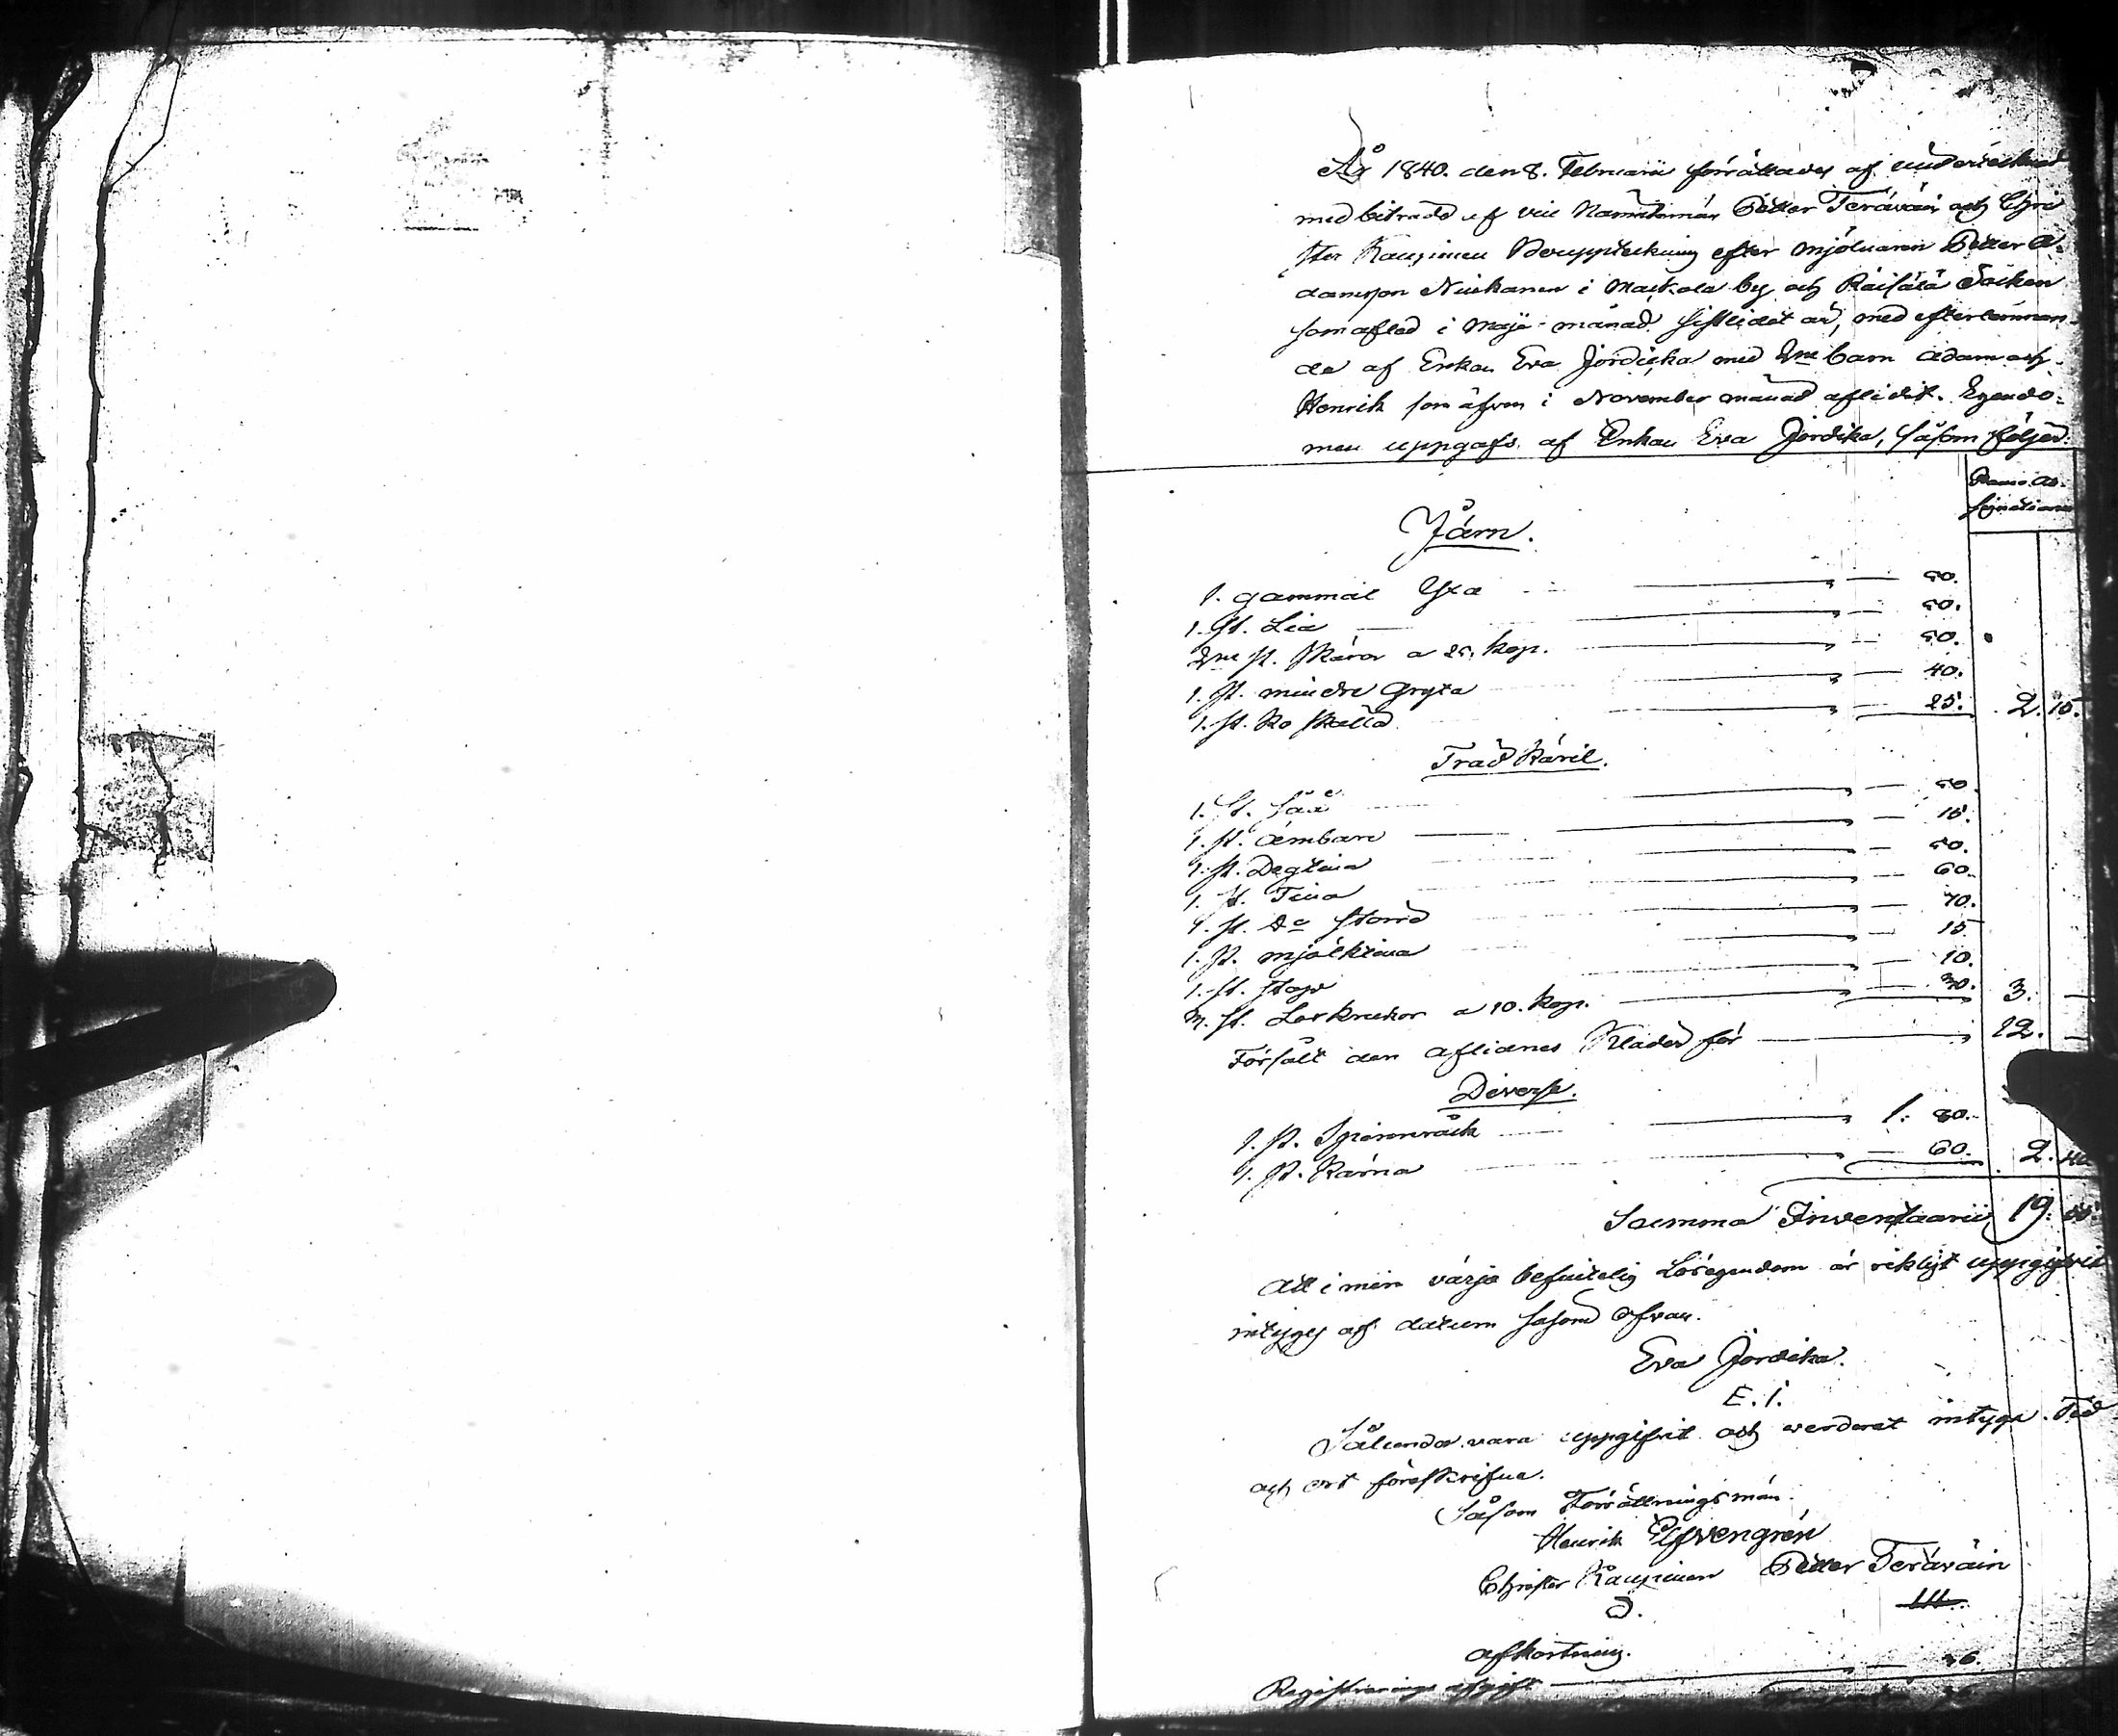 År 1840. den 8. Februarii förrättades af undertecknad
med biträde af vice Nämndemän Petter Teräväin och Chri
ster Kaupinen Bouppteckning efter mjölnaren Petter A-
damsson Niukanen i Markala by och Räisälä Socken
som afled i Maji månad sistledit år, med efterlämnan-
de af Enkan Eva Jördikka med 2ne barn Adam och
Henrik som äfven i November månad aflidit. Egendo-
men uppgafs af Enkan Eva Jördika, såsom följer:
Banco As-
signationer
Järn.
1. gammal Yxa 50.
1. st. Lia 50.
2ne st. skäror a 25. kop. 50.
1. st. mindre Gryta 40.
1. st. Ko skälla 25. 2. 15.
Träd Käril.
1. st. Såå 50.
1. st. Ämbare 15.
1. st. Degtina 50.
1. st. Tina 60.
1. st. do större 70.
1. st. mjölktina 15.
1. st. stop 10.
3. st. a 10. kop. 30. 3. —
Försålt den aflidnes Kläder för 12. —
Diverse.
1. st. Spinnråck 1. 80.
1. st. Kärna 60. 2. 40
Summa Inventaarii 19. 55.
Att i min värjo befintelig Lösegendom är riktigt uppgifvit
intyges af datum såsom ofvan.
Eva Jördika.
E. I.
Sålunda vara uppgifvit och värderat intyga. Tid
och ort föreskrifne.
Såsom Förrättningsmän.
Henrik Elfvengrén
Christer Kaupinen Petter Teräväin
Afkortning.
Registrerings afgift 36.